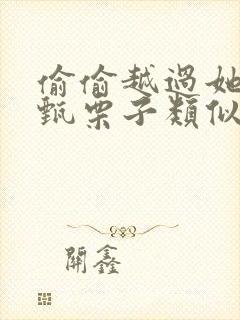 偷偷越過她
甄栗子類似
開鑫